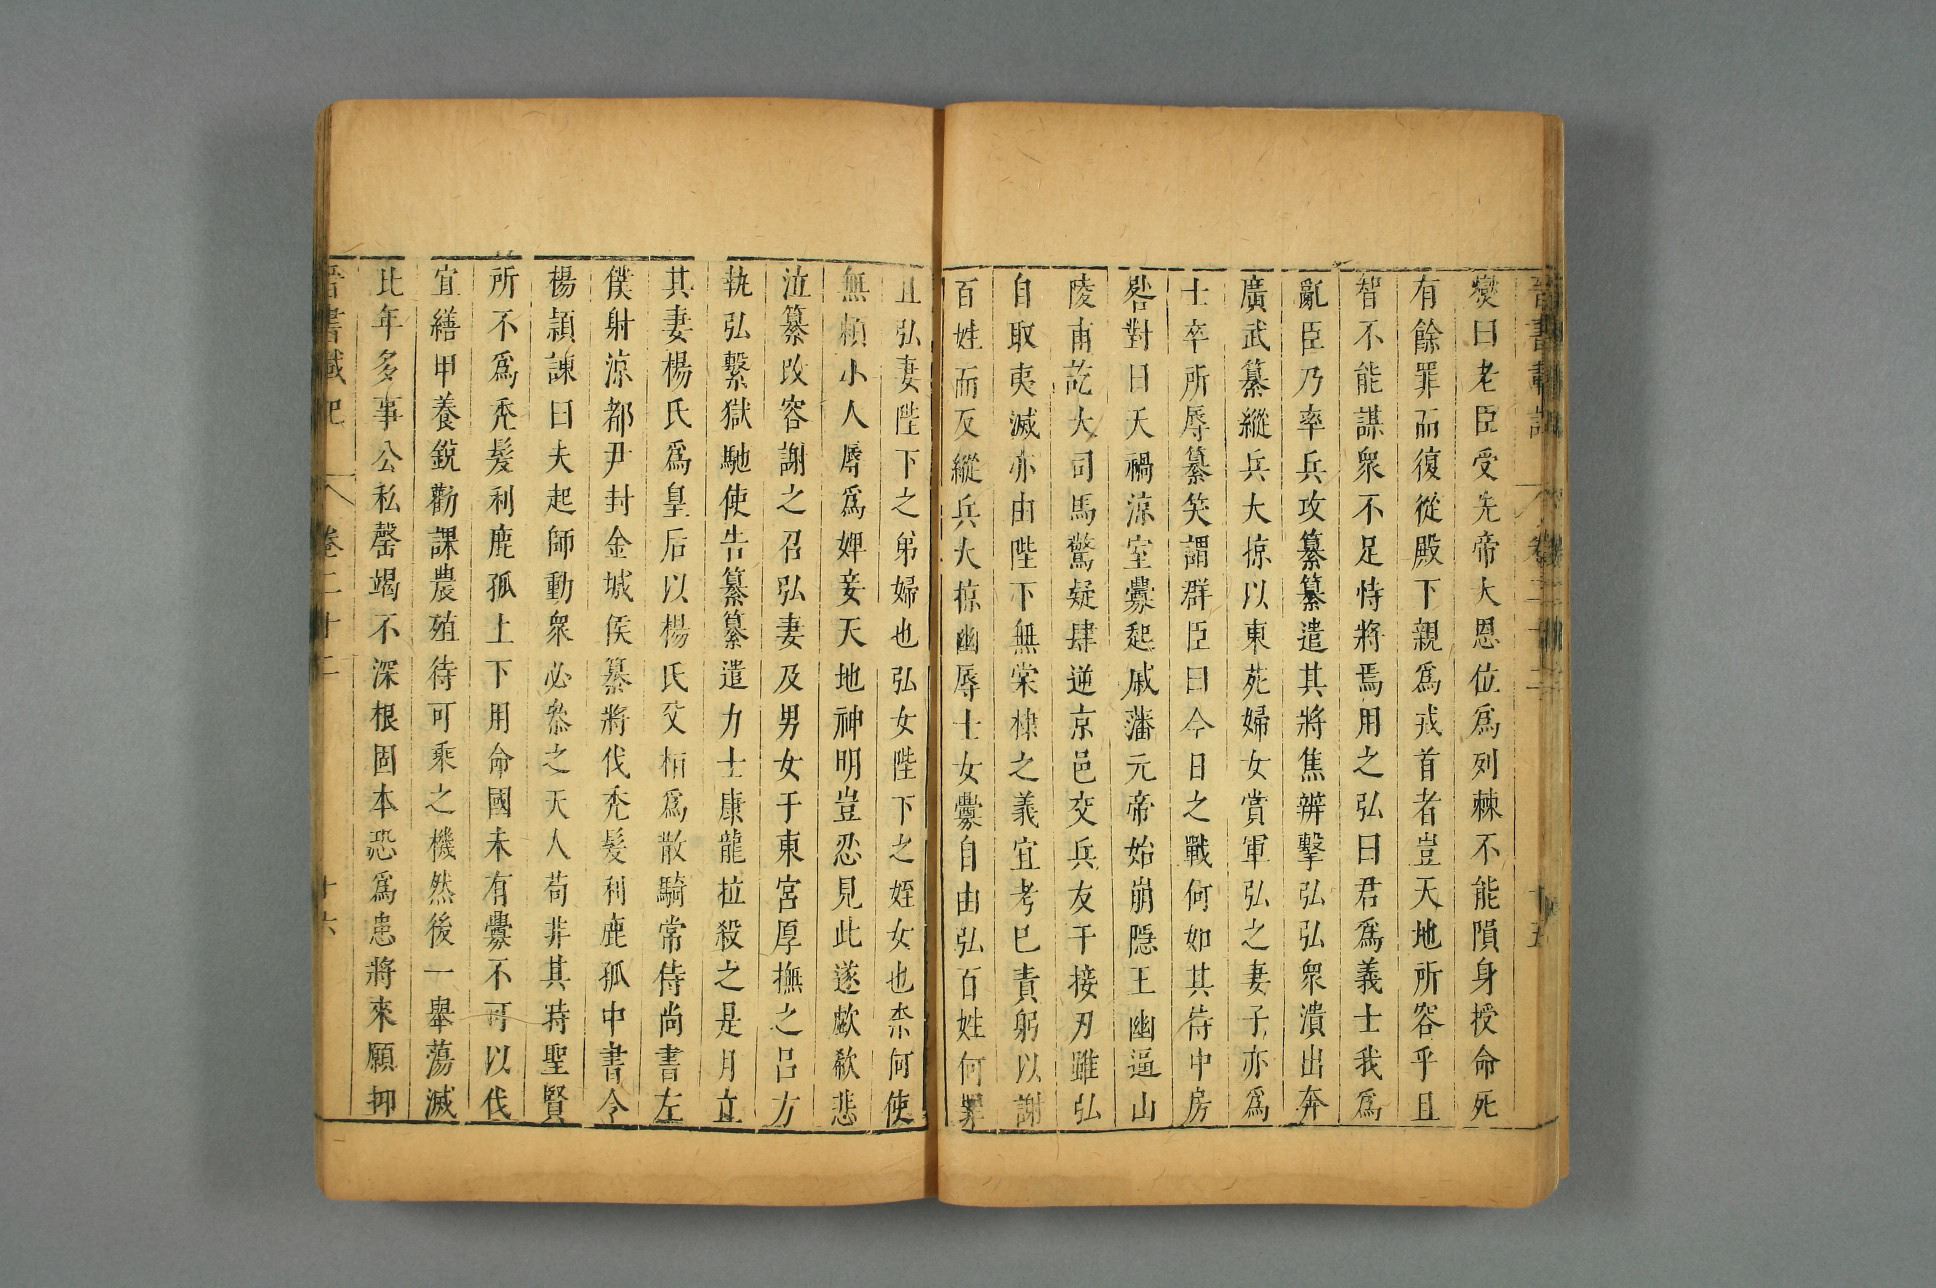 變曰老臣受先帝大恩位爲列棘不能隕身授命死
有餘罪而復從殿下親爲戎首者豈天地所容乎且
智不能謀衆不足恃將焉用之弘曰君爲義士我爲
亂臣乃率兵攻纂纂遣其將焦辨擊弘弘衆潰出奔
廣武纂縱兵大掠以東苑婦女賞軍弘之妻子亦爲
士卒所辱纂笑謂群臣曰今日之戰何如其侍中房
晷對曰天禍涼室釁起戚藩元帝始崩隱王幽逼山
陵甫訖大司馬驚疑肆逆京邑交兵友于接刃雖弘
自取夷滅亦由陛下無棠棣之義宜考已責躬以謝
百姓而反縱兵大掠幽辱士女釁自由弘百姓何罪
且弘妻陛下之弟婦也弘女陛下之姪女也柰何使
無賴小人辱爲婢妾天地神明豈忍見此遂歔欷悲
泣纂改容謝之召弘妻及男女于東宮厚撫之呂方
執弘繫獄馳使告纂纂遣力士康龍拉殺之是月立
其妻楊氏爲皇后以楊氏父桓爲散騎常侍尚書左
僕射涼都尹封金城侯纂將伐禿髮利鹿孤中書令
楊頴諫曰夫起師動衆必叅之天人苟非其時聖賢
所不爲禿髮利鹿孤上下用命國未有釁不可以伐
宜繕甲養銳勸課農殖待可乘之機然後一舉蕩滅
比年多事公私罄竭不深根固本恐爲患將來願抑
晉書載記 卷二十二 十六